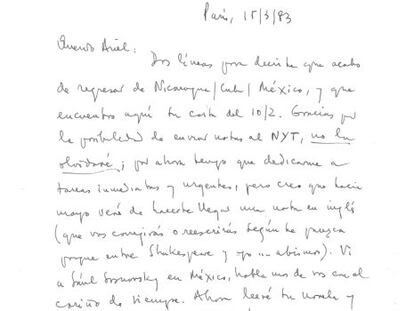 París, 15/3/83
Querido Ariel:
Dos líneas para decirte que acabo
de regresar de Nicaragua/Cuba/México, y que
encuentro aquí tu carta del 10/2. Gracias por
la posibilidad de enviar notas al NYT, no la
olvidaré; por ahora tengo que dedicarme a
tareas inmediatas y urgentes, pero creo que hacia
mayo veré de hacerte llegar una nota en inglés
(que vos corregirás o reescribirás según te parezca
porque entre Shakespeare y yo... abismos). Vi
a Saúl Sosnowsky en México, hablamos de vos con el
cariño de siempre. Ahora leeré tu novela y